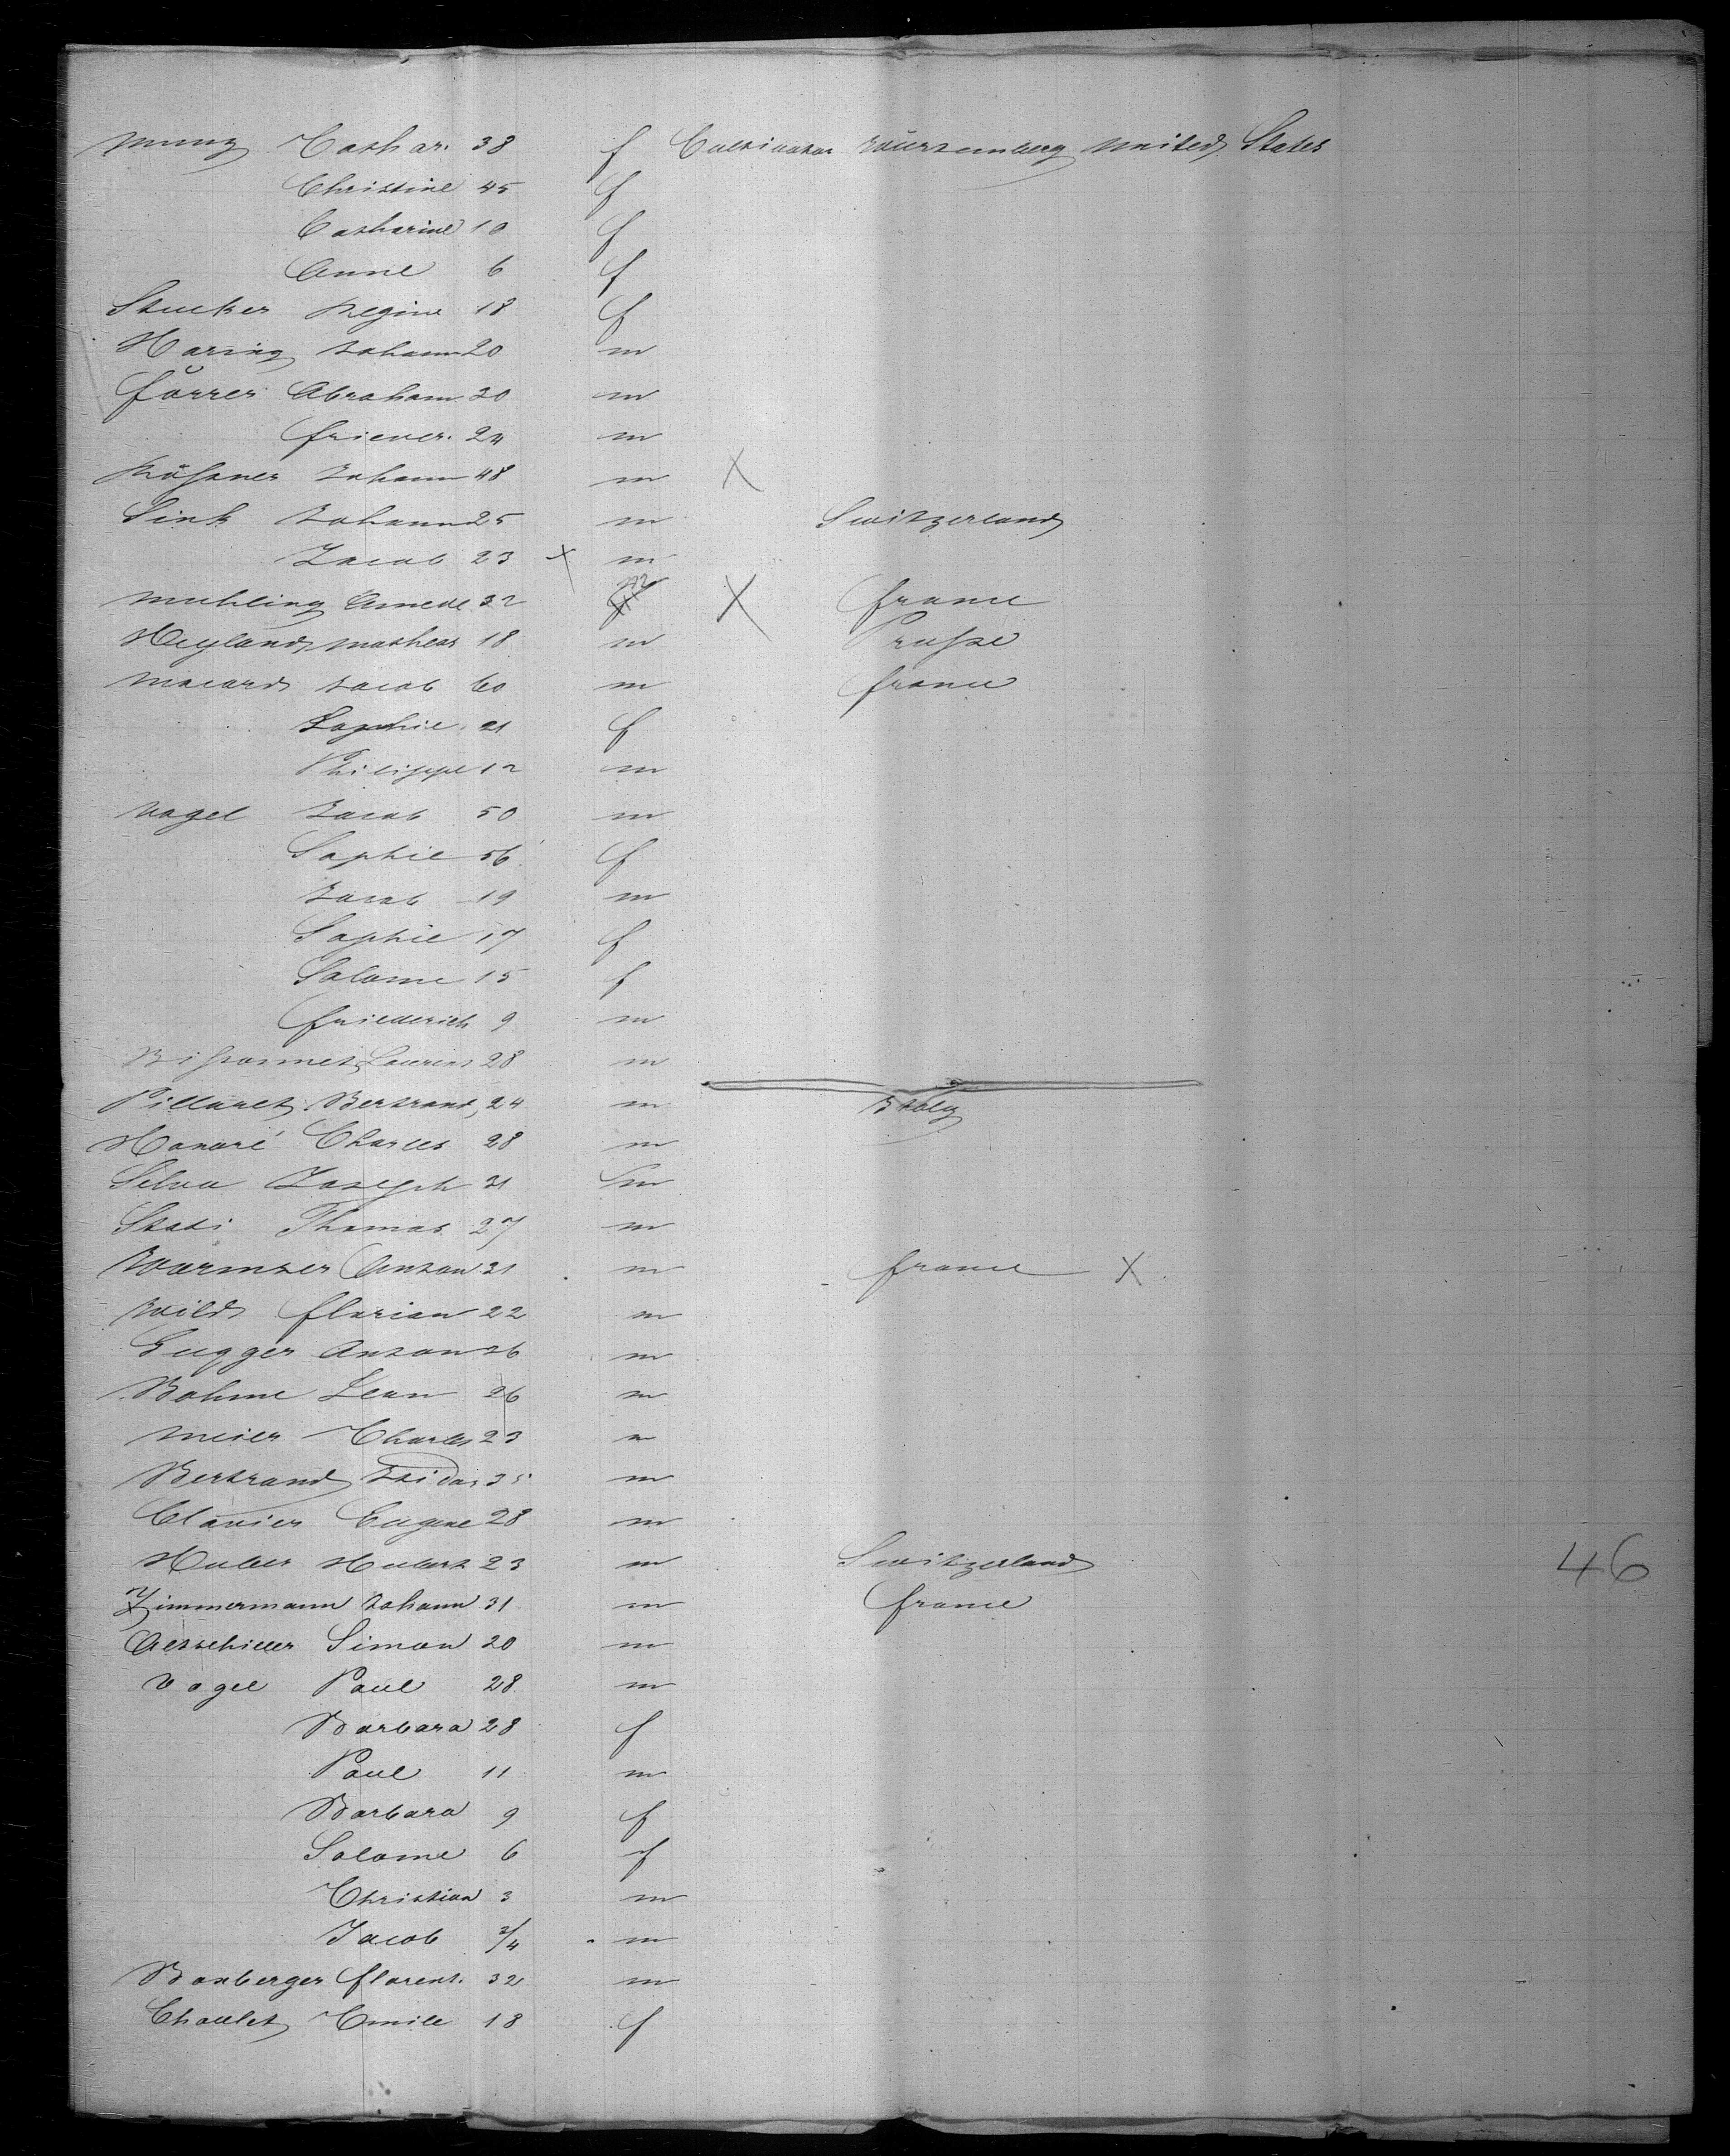 Munz Cathar. 38 f Cultivator Wurtemberg United States
Christine 45 f
Catharine 10 f
Anne 6 f
Stucker Regine 18 f
Haring Johann 20 m
Furrer Abraham 30 m
frieder. 24 m
Johann 48 m X
Sink Johann 25 m Switzerland
Jacob 23 X m
Muhling Amede 32 m X france
Heyland Matheas 18 m Prusse
Macard Jacob 60 m france
Sophie 21 f
Philippe 12 m
Vogel Jacob 50 m
Sophie 56 f
Jacob 19 m
Sophie 17 f
Salome 15 f
friederich 9 m
Bissonnet Laurent 28 m
Pillaret Bertrand 24 m Italy
Honoré Charles 28 m
Selva Joseph 31 m
Stati Thomas 27 m
Warmser Anton 31 m france X
Wild florian 22 m
Gugger Anton 26 m
Bohme Jean 26 m
Meier Charles 23 m
Bertrand Isidor 35 m
Clavier Eugene 28 m
Huber Hubert 23 m Switzerland 46
Zimmermann Johann 31 m france
Simon 20 m
Vogel Paul 28 m
Barbara 28 f
Paul 11 m
Barbara 9 f
Salome 6 f
Christian 3 m
Jacob 3/4 m
Boxberger florent. 32 m
Choulet Emile 18 f